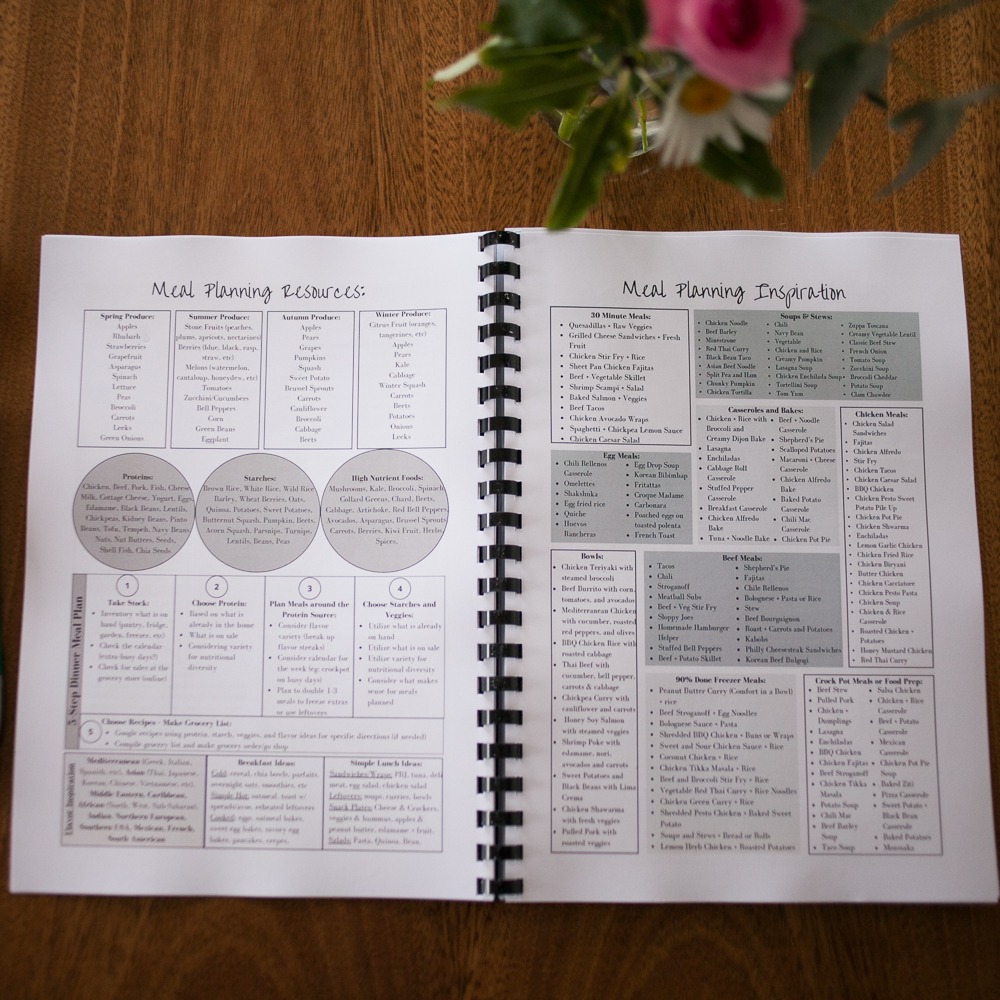 Meal Planning Resources:
Spring Produce:
Apples
Rhubarb
Strawberries
Grapefruit
Asparagus
Spinach
Lettuce
Peas
Broccoli
Carrots
Leeks
Green Onions
Summer Produce:
Stone Fruits (peaches,
plums, apricots, nectarines)
Berries (blue, black, rasp,
straw, etc)
Melons (watermelon,
cantaloup, honeydew, etc)
Tomatoes
Zucchini/Cucumbers
Bell Peppers
Corn
Green Beans
Eggplant
Autumn Produce:
Apples
Pears
Grapes
Pumpkins
Squash
Sweet Potato
Brussel Sprouts
Carrots
Cauliflower
Broccoli
Cabbage
Beets
Winter Produce:
Citrus Fruit (oranges,
tangerines, etc)
Apples
Pears
Kale
Cabbage
Winter Squash
Carrots
Beets
Potatoes
Onions
Leeks
Proteins:
Chicken, Beef, Pork, Fish, Cheese
Milk, Cottage Cheese, Yogurt, Eggs,
Edamame, Black Beans, Lentils,
Chickpeas, Kidney Beans, Pinto
Beans, Tofu, Tempeh, Navy Beans
Nuts, Nut Butters, Seeds,
Shell Fish, Chia Seeds
Starches:
Brown Rice, White Rice, Wild Rice
Barley, Wheat Berries, Oats,
Quinoa, Potatoes, Sweet Potatoes,
Butternut Squash, Pumpkin, Beets,
Acorn Squash, Parsnips, Turnips,
Lentils, Beans, Peas
High Nutrient Foods:
Mushrooms, Kale, Broccoli, Spinach
Collard Greens, Chard, Beets,
Cabbage, Artichoke, Red Bell Peppers
Avocados, Asparagus, Brussel Sprouts
Carrots, Berries, Kiwi Fruit, Herbs,
Spices,
5 Step Dinner Meal Plan
1
Take Stock:
• Inventory what is on
hand (pantry, fridge,
garden, freezer, etc)
• Check the calendar
(extra-busy days?)
• Check for sales at the
grocery store (online)
2
Choose Protein:
• Based on what is
already in the home
• What is on sale
• Considering variety
for nutritional
diversity
3
Plan Meals around the
Protein Source:
• Consider flavor
variety (break up
flavor streaks)
• Consider calendar for
the week (eg: crockpot
on busy days)
• Plan to double 1-3
meals to freeze extras
or use leftovers
4
Choose Starches and
Veggies:
• Utilize what is already
on hand
• Utilize what is on sale
• Utilize variety for
nutritional diversity
• Consider what makes
sense for meals
planned
5
Choose Recipes - Make Grocery List:
• Google recipes using protein, starch, veggies, and flavor ideas for specific directions (if needed)
• Compile grocery list and make grocery order/go shop
Flavor Inspiration
Mediterranean (Greek, Italian,
Spanish, etc), Asian (Thai, Japanese,
Korean, Chinese, Vietnamese, etc),
Middle Eastern, Caribbean,
African (North, West, Sub-Saharan),
Indian, Northern European,
Southern USA, Mexican, French,
South American
Breakfast Ideas:
Cold: cereal, chia bowls, parfaits,
overnight oats, smoothies, etc
Simple Hot: oatmeal, toast w/
spreads/avo, reheated leftovers
Cooked: eggs, oatmeal bakes,
sweet egg bakes, savory egg
bakes, pancakes, crepes,
Simple Lunch Ideas:
Sandwiches/Wraps: PBJ, tuna, deli
meat, egg salad, chicken salad
Leftovers: soups, curries, bowls
Snack Plates: Cheese & Crackers,
veggies & hummus, apples &
peanut butter, edamame + fruit,
Salads: Pasta, Quinoa, Bean,
Meal Planning Inspiration
30 Minute Meals:
• Quesadillas + Raw Veggies
• Grilled Cheese Sandwiches + Fresh
Fruit
• Chicken Stir Fry + Rice
• Sheet Pan Chicken Fajitas
• Beef + Vegetable Skillet
• Shrimp Scampi + Salad
• Baked Salmon + Veggies
• Beef Tacos
• Chicken Avocado Wraps
• Spaghetti + Chickpea Lemon Sauce
• Chicken Caesar Salad
Soups & Stews:
• Chicken Noodle
• Beef Barley
• Minestrone
• Red Thai Curry
• Black Bean Taco
• Asian Beef Noodle
• Split Pea and Ham
• Chunky Pumpkin
• Chicken Tortilla
• Chili
• Navy Bean
• Vegetable
• Chicken and Rice
• Creamy Pumpkin
• Lasagna Soup
• Chicken Enchilada Soup
• Tortellini Soup
• Tom Yum
• Zuppa Toscana
• Creamy Vegetable Lentil
• Classic Beef Stew
• French Onion
• Tomato Soup
• Zucchini Soup
• Broccoli Cheddar
• Potato Soup
• Clam Chowder
Egg Meals:
• Chili Rellenos
Casserole
• Omelettes
• Shakshuka
• Egg fried rice
• Quiche
• Huevos
Rancheros
• Egg Drop Soup
• Korean Bibimbap
• Frittatas
• Croque Madame
• Carbonara
• Poached eggs on
toasted polenta
• French Toast
Casseroles and Bakes:
• Chicken + Rice with
Broccoli and
Creamy Dijon Bake
• Lasagna
• Enchiladas
• Cabbage Roll
Casserole
• Stuffed Pepper
Casserole
• Breakfast Casserole
• Chicken Alfredo
Bake
• Tuna + Noodle Bake
• Beef + Noodle
Casserole
• Shepherd's Pie
• Scalloped Potatoes
• Macaroni + Cheese
• Chicken Alfredo
Bake
• Baked Potato
Casserole
• Chili Mac
Casserole
• Chicken Pot Pie
Chicken Meals:
• Chicken Salad
Sandwiches
• Fajitas
• Chicken Alfredo
• Stir Fry
• Chicken Tacos
• Chicken Caesar Salad
• BBQ Chicken
• Chicken Pesto Sweet
Potato Pile Up
• Chicken Pot Pie
• Chicken Shwarma
• Enchiladas
• Lemon Garlic Chicken
• Chicken Fried Rice
• Chicken Biryani
• Butter Chicken
• Chicken Cacciatore
• Chicken Pesto Pasta
• Chicken Soup
• Chicken & Rice
Casserole
• Roasted Chicken +
Potatoes
• Honey Mustard Chicken
• Red Thai Curry
Bowls:
• Chicken Teriyaki with
steamed broccoli
• Beef Burrito with corn,
tomatoes, and avocado
• Mediterranean Chicken
with cucumber, roasted
red peppers, and olives
• BBQ Chicken Rice with
roasted cabbage
• Thai Beef with
cucumber, bell pepper,
carrots & cabbage
• Chickpea Curry with
cauliflower and carrots
• Honey Soy Salmon
with steamed veggies
• Shrimp Poke with
edamame, nori,
avocado and carrots
• Sweet Potatoes and
Black Beans with Lime
Crema
• Chicken Shawarma
with fresh veggies
• Pulled Pork with
roasted veggies
Beef Meals:
• Tacos
• Chili
• Stroganoff
• Meatball Subs
• Beef + Veg Stir Fry
• Sloppy Joes
• Homemade Hamburger
Helper
• Stuffed Bell Peppers
• Beef + Potato Skillet
• Shepherd's Pie
• Fajitas
• Chile Rellenos
• Bolognese + Pasta or Rice
• Stew
• Beef Bourguignon
• Roast + Carrots and Potatoes
• Kabobs
• Philly Cheesesteak Sandwiches
• Korean Beef Bulgogi
90% Done Freezer Meals:
• Peanut Butter Curry (Comfort in a Bowl)
+ rice
• Beef Stroganoff + Egg Noodles
• Bolognese Sauce + Pasta
• Shredded BBQ Chicken + Buns or Wraps
• Sweet and Sour Chicken Sauce + Rice
• Coconut Chicken + Rice
• Chicken Tikka Masala + Rice
• Beef and Broccoli Stir Fry + Rice
• Vegetable Red Thai Curry + Rice Noodles
• Chicken Green Curry + Rice
• Shredded Pesto Chicken + Baked Sweet
Potato
• Soups and Stews + Bread or Rolls
• Lemon Herb Chicken + Roasted Potatoes
Crock Pot Meals or Food Prep:
• Beef Stew
• Pulled Pork
• Chicken +
Dumplings
• Lasagna
• Enchiladas
• BBQ Chicken
• Chicken Fajitas
• Beef Stroganoff
• Chicken Tikka
Masala
• Potato Soup
• Chili Mac
• Beef Barley
Soup
• Taco Soup
• Salsa Chicken
• Chicken + Rice
Casserole
• Beef + Potato
• Mexican
Casserole
• Chicken Pot Pie
Soup
• Baked Ziti
• Pizza Casserole
• Sweet Potato +
Black Bean
Casserole
• Baked Potatoes
• Moussaka